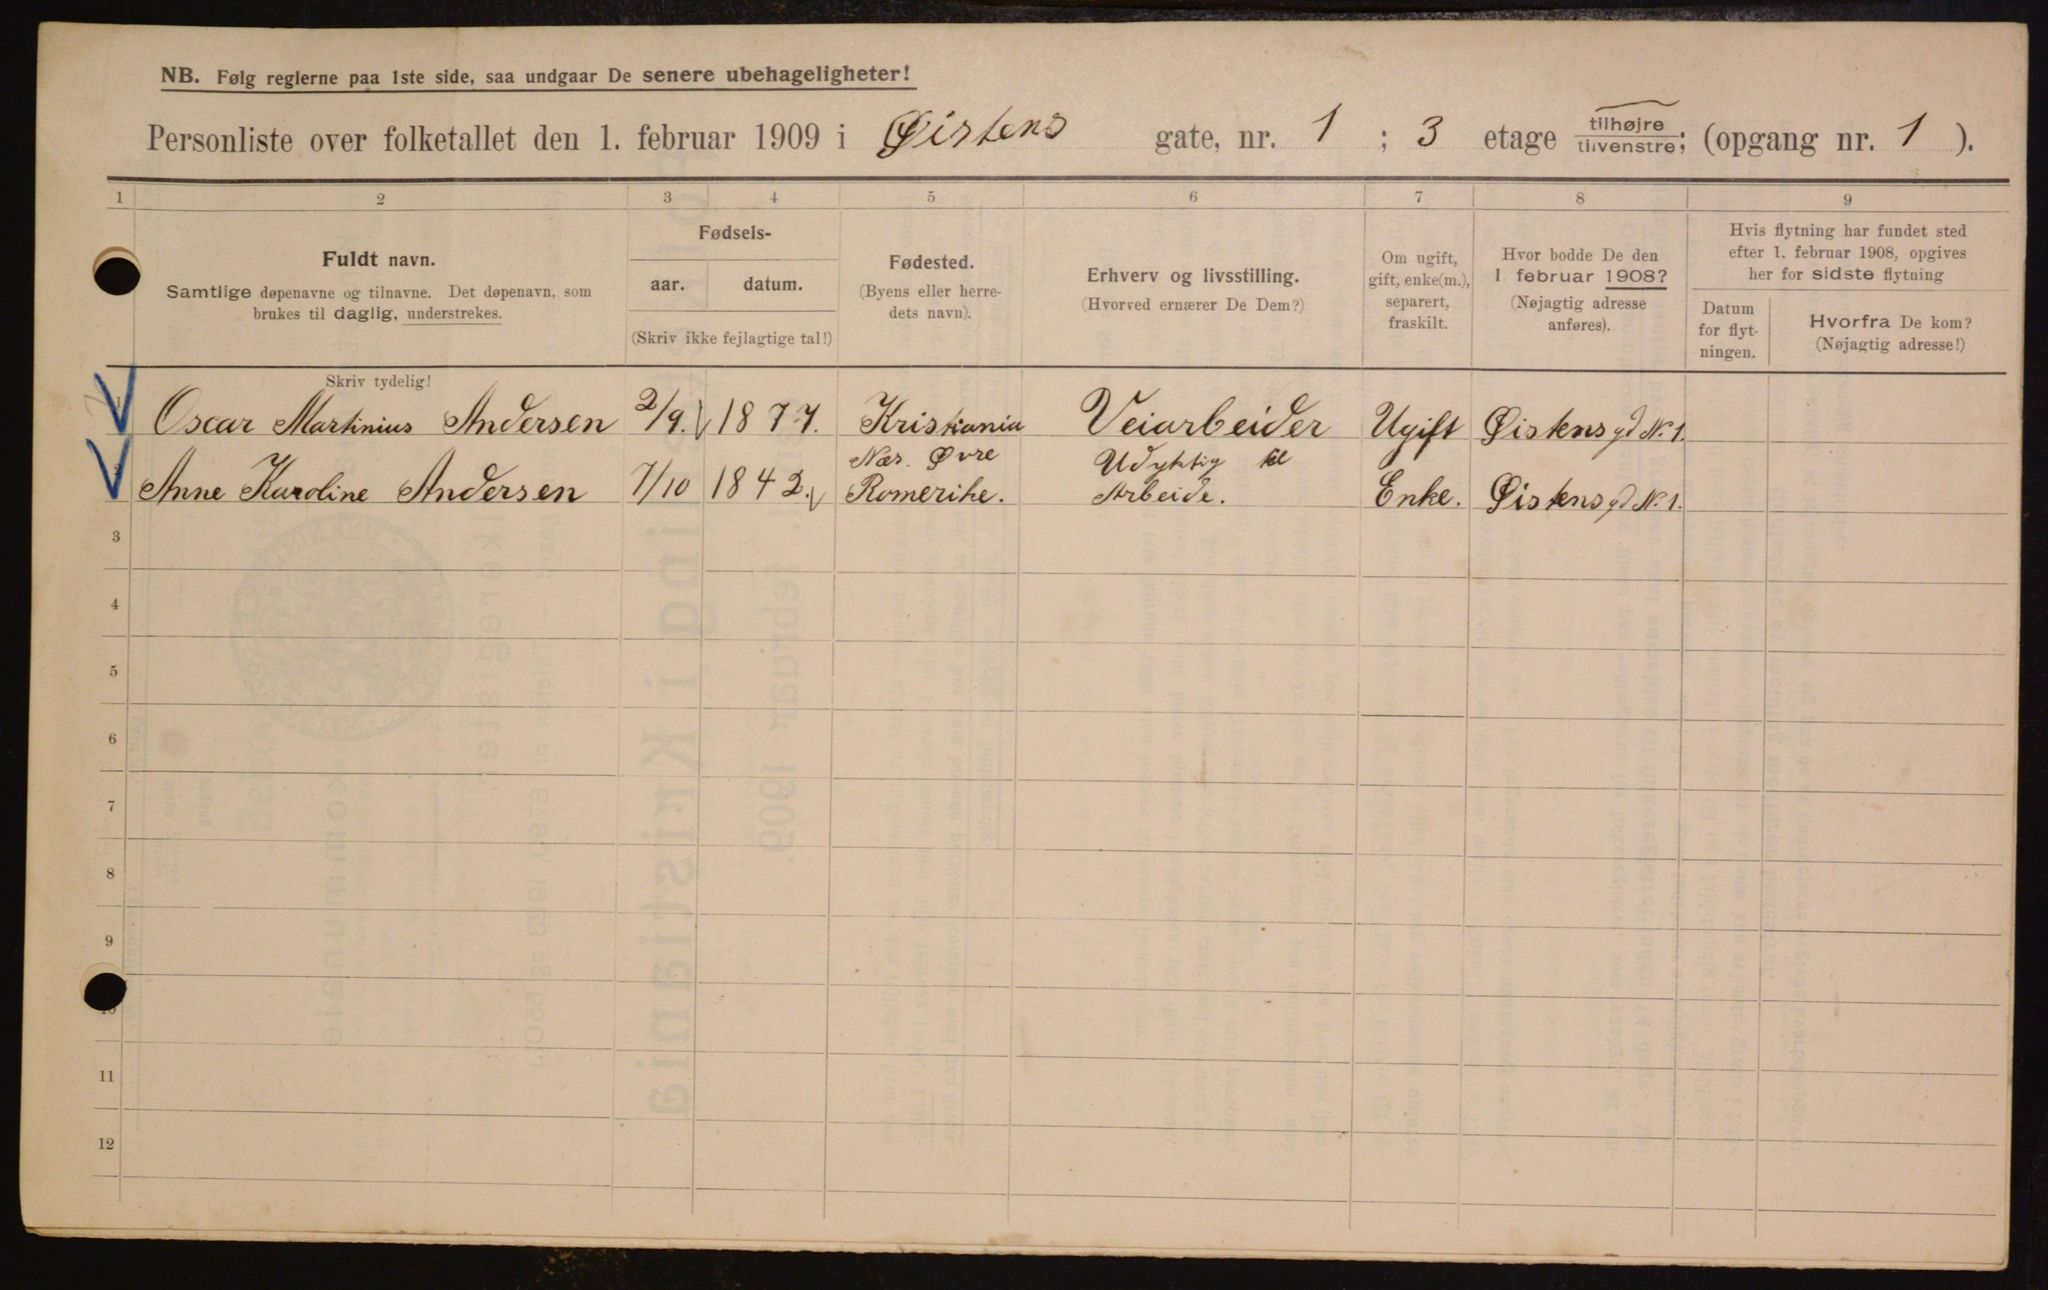 NB. Følg reglerne paa 1ste side, saa undgaar De senere ubehageligheter!
Personliste over folketallet den 1. februar 1909 i Øistens gate, nr. 1 ; 3 etage tilhøjre / tilvenstre; (opgang nr. 1 ).
1 2 3 4 5 6 7 8 9
Fuldt navn.
Samtlige døpenavne og tilnavne. Det døpenavn, som
brukes til daglig, understrekes.
Skriv tydelig!
Fødsels-
aar. datum.
(Skriv ikke fejlagtige tal!)
Fødested.
(Byens eller herre-
dets navn).
Erhverv og livsstilling.
(Hvorved ernærer De Dem?)
Om ugift,
gift, enke(m.),
separert,
fraskilt.
Hvor bodde De den
1 februar 1908?
(Nøjagtig adresse
anføres).
Hvis flytning har fundet sted
efter 1. februar 1908, opgives
her for sidste flytning
Datum
for flyt-
ningen.
Hvorfra De kom?
(Nøjagtig adresse!)
Oscar Martinius Andersen 2/9. 1877. Kristiania Veiarbeider Ugift Øistens gd No. 1.
Anne Karoline Andersen 7/10 1842. Nær. Øvre Romerike. Udyktig til Arbeide. Enke. Øistens gd No. 1.
3
4
5
6
7
8
9
10
11
12